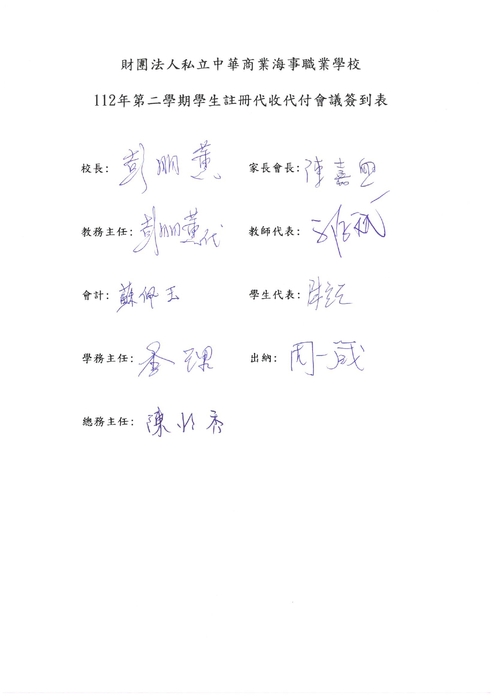 財團法人私立中華商業海事職業學校
112年第二學期學生註冊代收代付會議簽到表
校長: 彭朋薰 家長會長: 陳嘉
教務主任: 彭朋薰代 教師代表:
會計: 蘇佩玉 學生代表:
學務主任: 出納: 周一葳
總務主任: 陳 秀